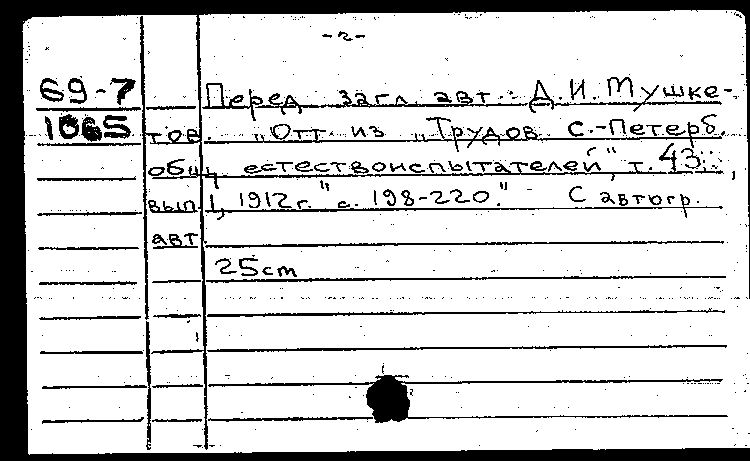 -2-
69-7 Перед загл. авт.: Д.И. Мушке-
1065 тов. „Отт. из „Трудов С.-Петерб.
общ. естествоиспытателей", т. 43,
вып. 1, 1912г." с. 198-220." С автогр.
авт.
25cm